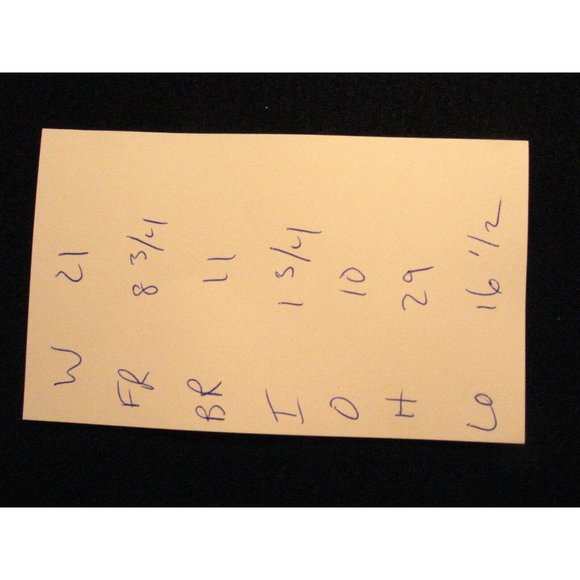 W 21
FR 8 3/4
BR 11
I 1 3/4
O 10
H 29
LO 16 1/2